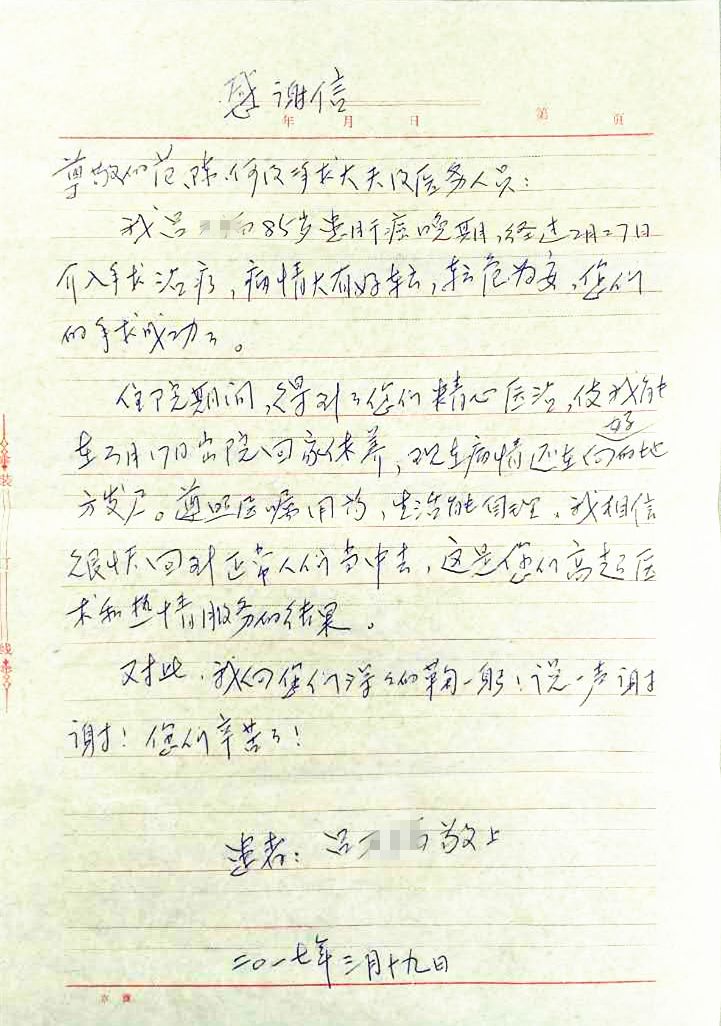 感谢信
年 月 日 第 页
尊敬的范、陈、何及手术大夫及医务人员：
我吕 85岁患肝癌晚期，经过2月27日
介入手术治疗，病情大有好转，转危为安，您们
的手术成功了。
住院期间，得到了您们精心医治，使我能
在3月17日出院回家休养，现在病情还在向好的地
方发展。遵照医嘱用药，生活能自理，我相信
很快回到正常人们当中去，这是您们高超医
术和热情服务的结果。
对此，我向您们深深的鞠一躬！说一声谢
谢！您们辛苦了！
患者：吕 敬上
二〇一七年三月十九日
装
订
线
京